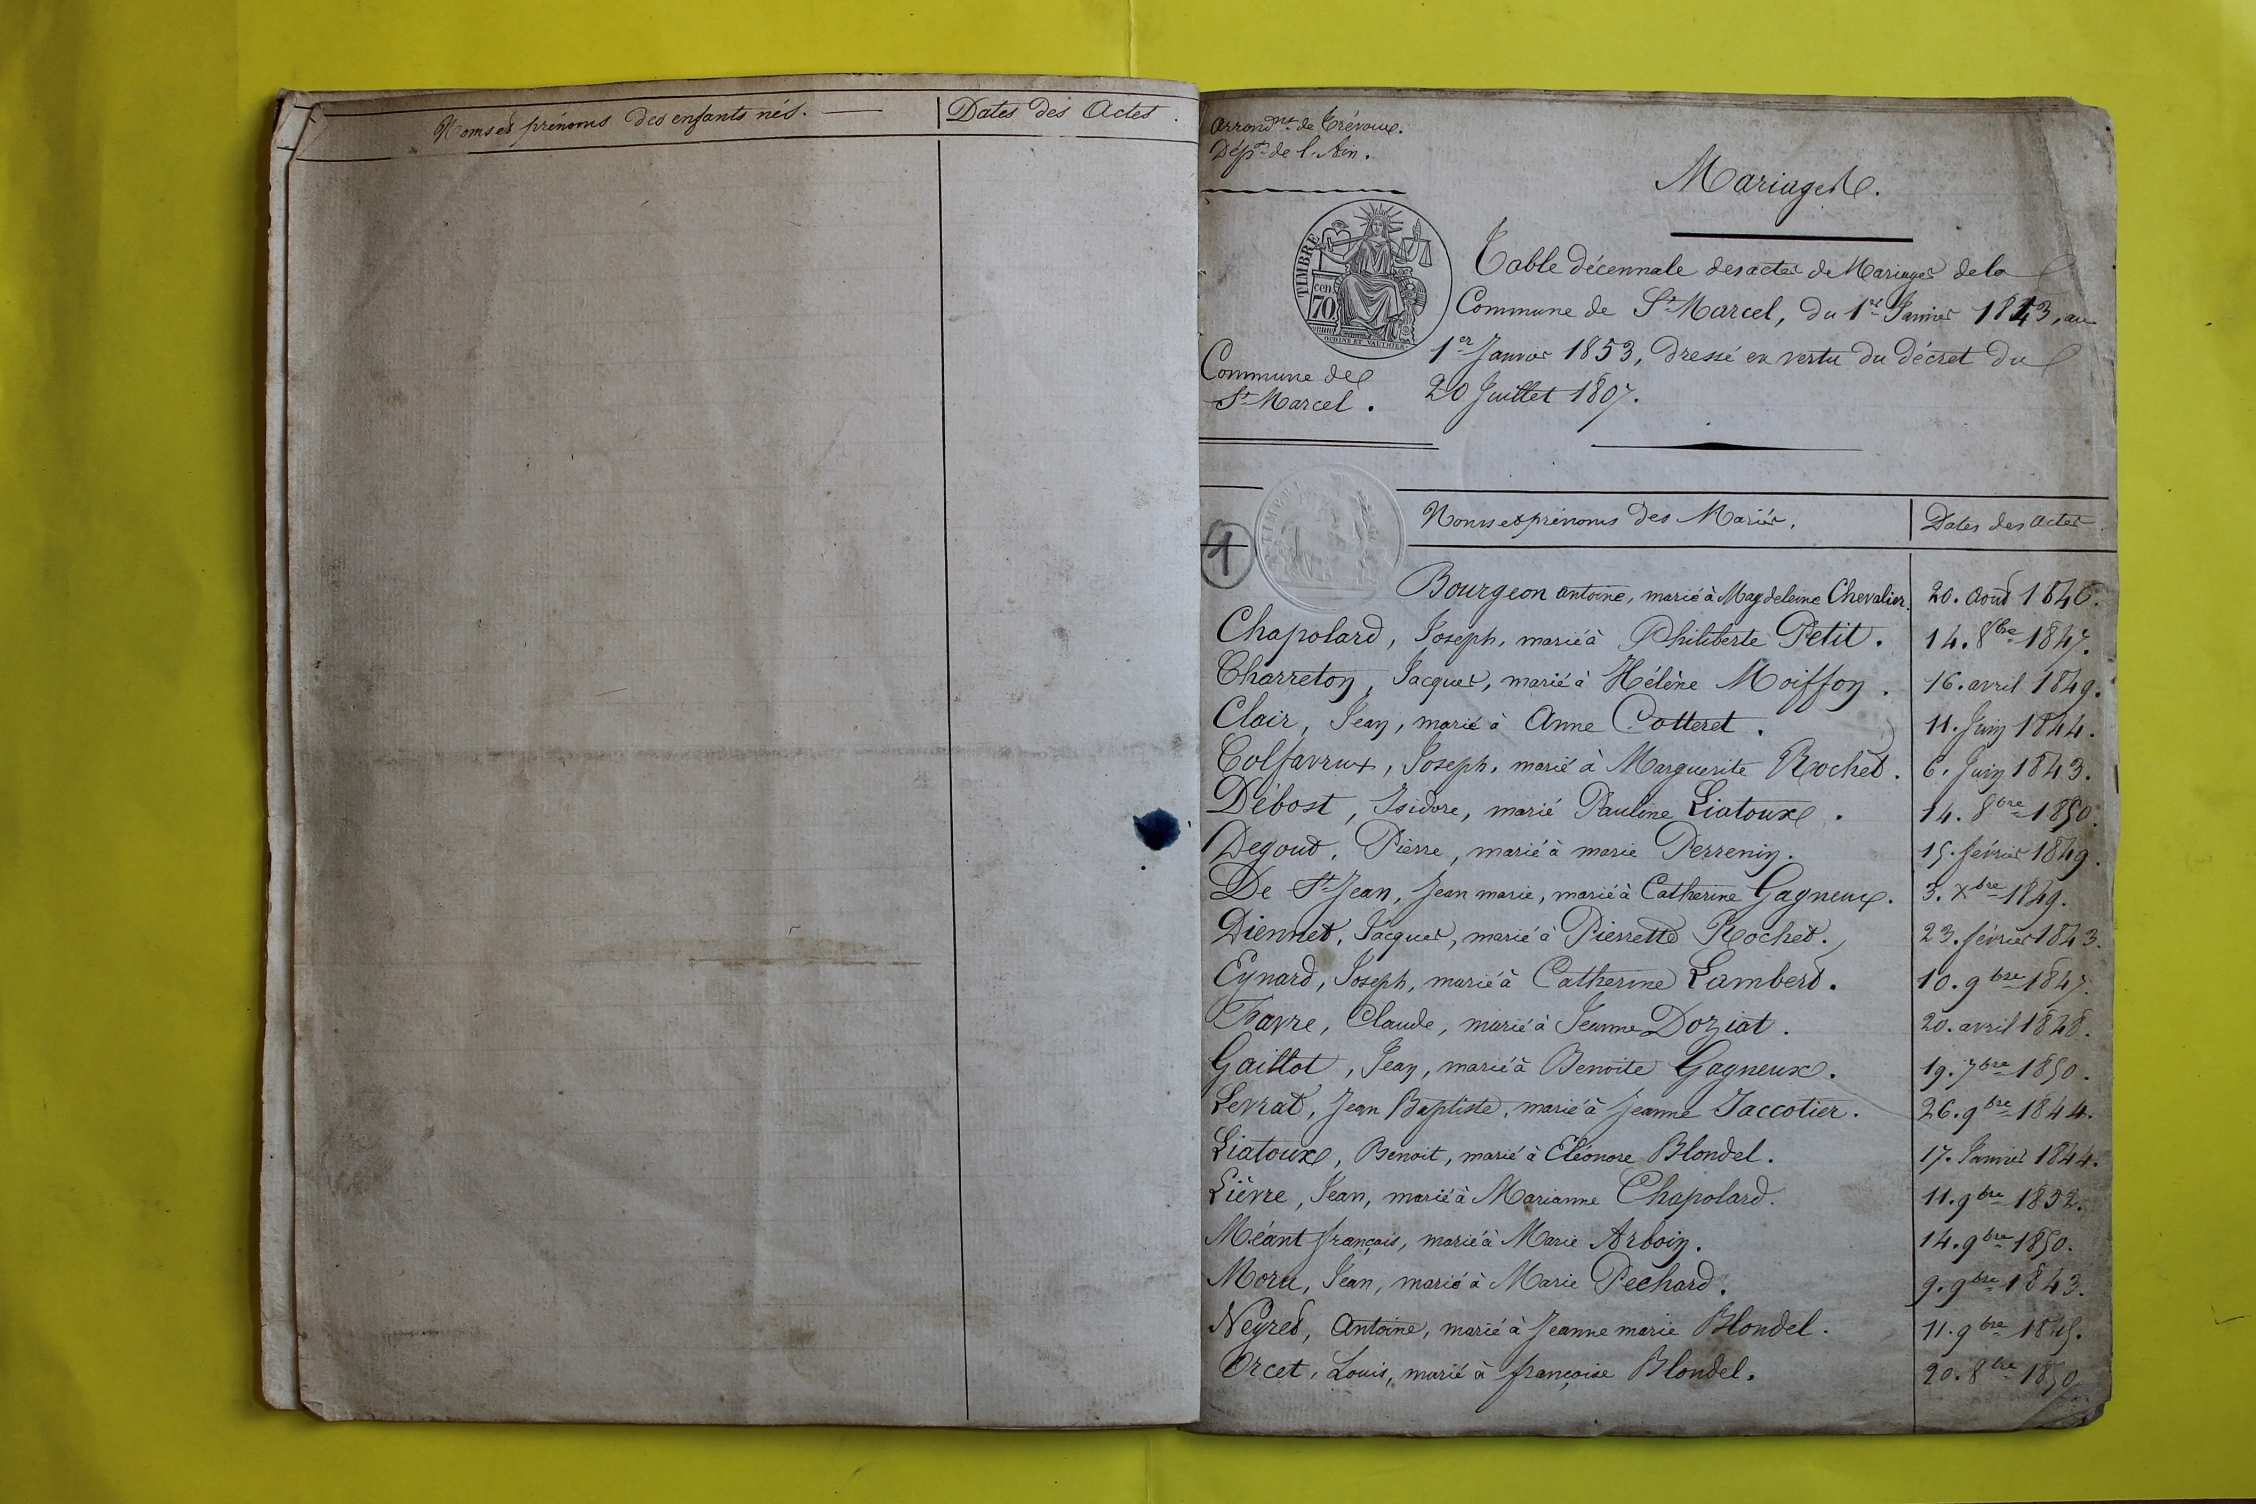 Noms et prénoms des enfants nés. Dates des Actes.
Arrond.nt de Trévoux.
Dép.t de l'Ain.
Mariages.
TIMBRE
cen.
70.
OUDINE ET VAUTHIER
Table décennale des actes de Mariages de la
Commune de St Marcel, du 1er Janvier 1843, au
1er Janvier 1853, Dressé en vertu du décret du
20 Juillet 1807.
Commune de
St Marcel.
1
Noms et prénoms des Mariés. Dates des Actes.
Bourgeon antoine, marié à Magdeleine Chevalier. 20. Août 1846.
Chapolard, Joseph, marié à Philiberte Petit. 14. 8bre 1847.
Charreton, Jacques, marié à Hélène Moiffon. 16. avril 1849.
Clair, Jean, marié à Anne Cotteret. 11. Juin 1844.
Colfavrux, Joseph, marié à Marguerite Rochet. 6. Juin 1843.
Débost, Isidore, marié Pauline Liatoux. 14. 8bre 1850.
Degout, Pierre, marié à marie Perrenin. 15. février 1849.
De St Jean, Jean marie, marié à Catherine Gagneux. 3. Xbre 1849.
Diennet, Jacques, marié à Pierrette Rochet. 23. février 1843.
Eynard, Joseph, marié à Catherine Lambert. 10. 9bre 1847.
Favre, Claude, marié à Jeanne Doziat. 20. avril 1848.
Gaillot, Jean, marié à Benoite Gagneux. 19. 7bre 1850.
Levrat, Jean Baptiste, marié à Jeanne Jaccotier. 26. 9bre 1844.
Liatoux, Benoit, marié à Eléonore Blondel. 17. Janvier 1844.
Lièvre, Jean, marié à Marianne Chapolard. 11. 9bre 1852.
Méant françois, marié à Marie Arboin. 14. 9bre 1850.
Moru, Jean, marié à Marie Pechard. 9. 9bre 1843.
Neyret, Antoine, marié à Jeanne marie Blondel. 11. 9bre 1845.
Orcet, Louis, marié à françoise Blondel. 20. 8bre 1850.